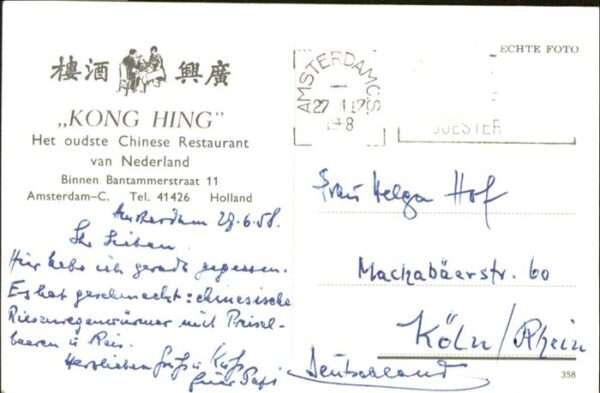 樓酒 興廣
„KONG HING”
Het oudste Chinese Restaurant
van Nederland
Binnen Bantammerstraat 11
Amsterdam–C. Tel. 41426 Holland
Amsterdam 27.6.58.
Ihr Lieben.
Hier habe ich gerade gegessen.
Es hat geschmeckt: chinesische
Riesenregenwürmer mit Preisel-
beeren u Reis.
Herzlichen Gruß u Kuß
Euer Papi
ECHTE FOTO
AMSTERDAM CS
Frau Helga Hof
Machabäerstr. 60
Köln/Rhein
Deutschland
358